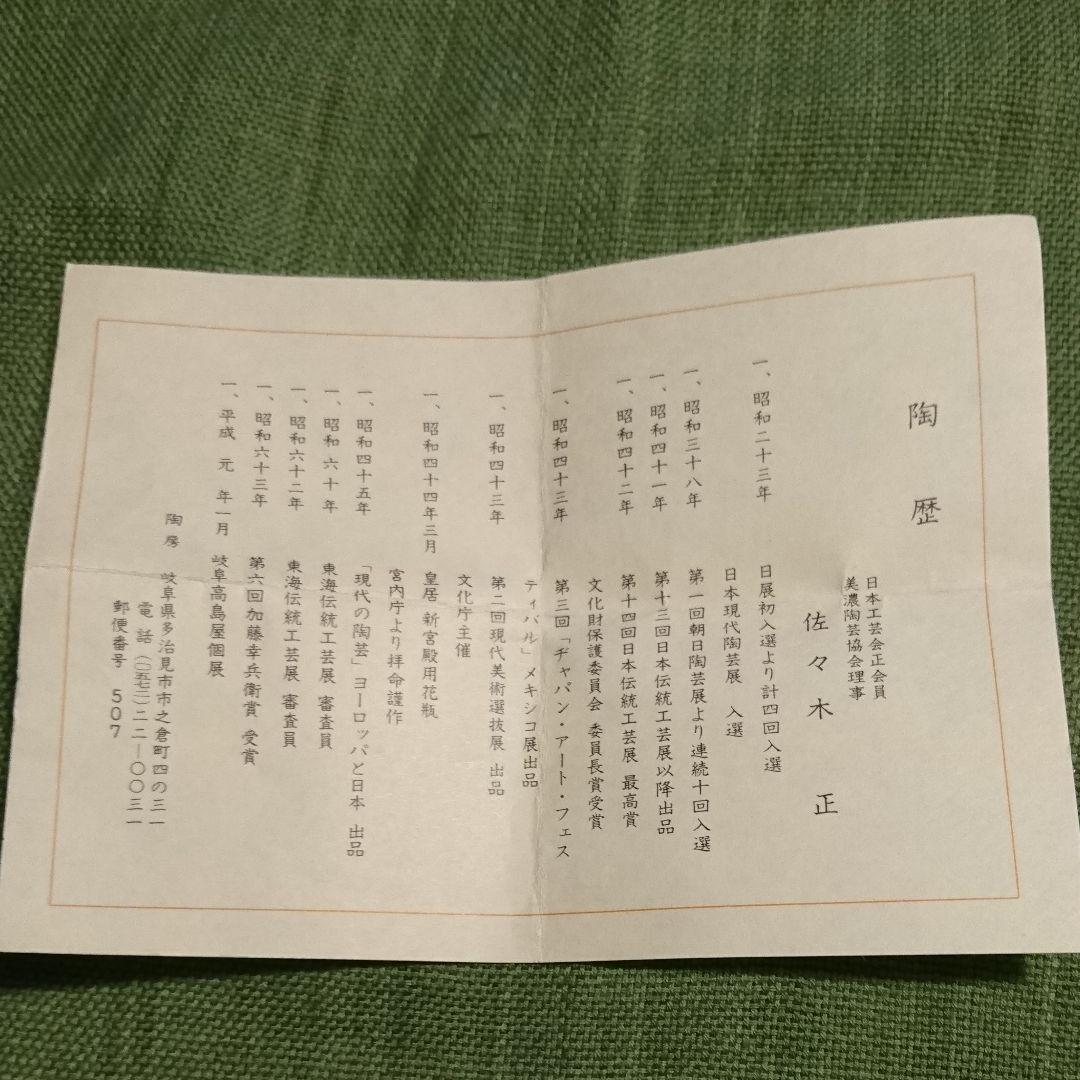 陶歴
日本工芸会正会員
美濃陶芸協会理事
佐々木 正
一、昭和二十三年 日展初入選より計四回入選
日本現代陶芸展 入選
一、昭和三十八年 第一回朝日陶芸展より連続十回入選
一、昭和四十一年 第十三回日本伝統工芸展以降出品
一、昭和四十二年 第十四回日本伝統工芸展 最高賞
文化財保護委員会 委員長賞受賞
一、昭和四十三年 第三回「ヂャパン・アート・フェス
ティバル」メキシコ展出品
一、昭和四十三年 第二回現代美術選抜展 出品
文化庁主催
一、昭和四十四年三月 皇居 新宮殿用花瓶
宮内庁より拝命謹作
一、昭和四十五年 「現代の陶芸」ヨーロッパと日本 出品
一、昭和六十年 東海伝統工芸展 審査員
一、昭和六十二年 東海伝統工芸展 審査員
一、昭和六十三年 第六回加藤幸兵衛賞 受賞
一、平成 元 年一月 岐阜高島屋個展
陶房 岐阜県多治見市市之倉町四の三一
電話(〇五七二)二二ー〇〇三一
郵便番号 507